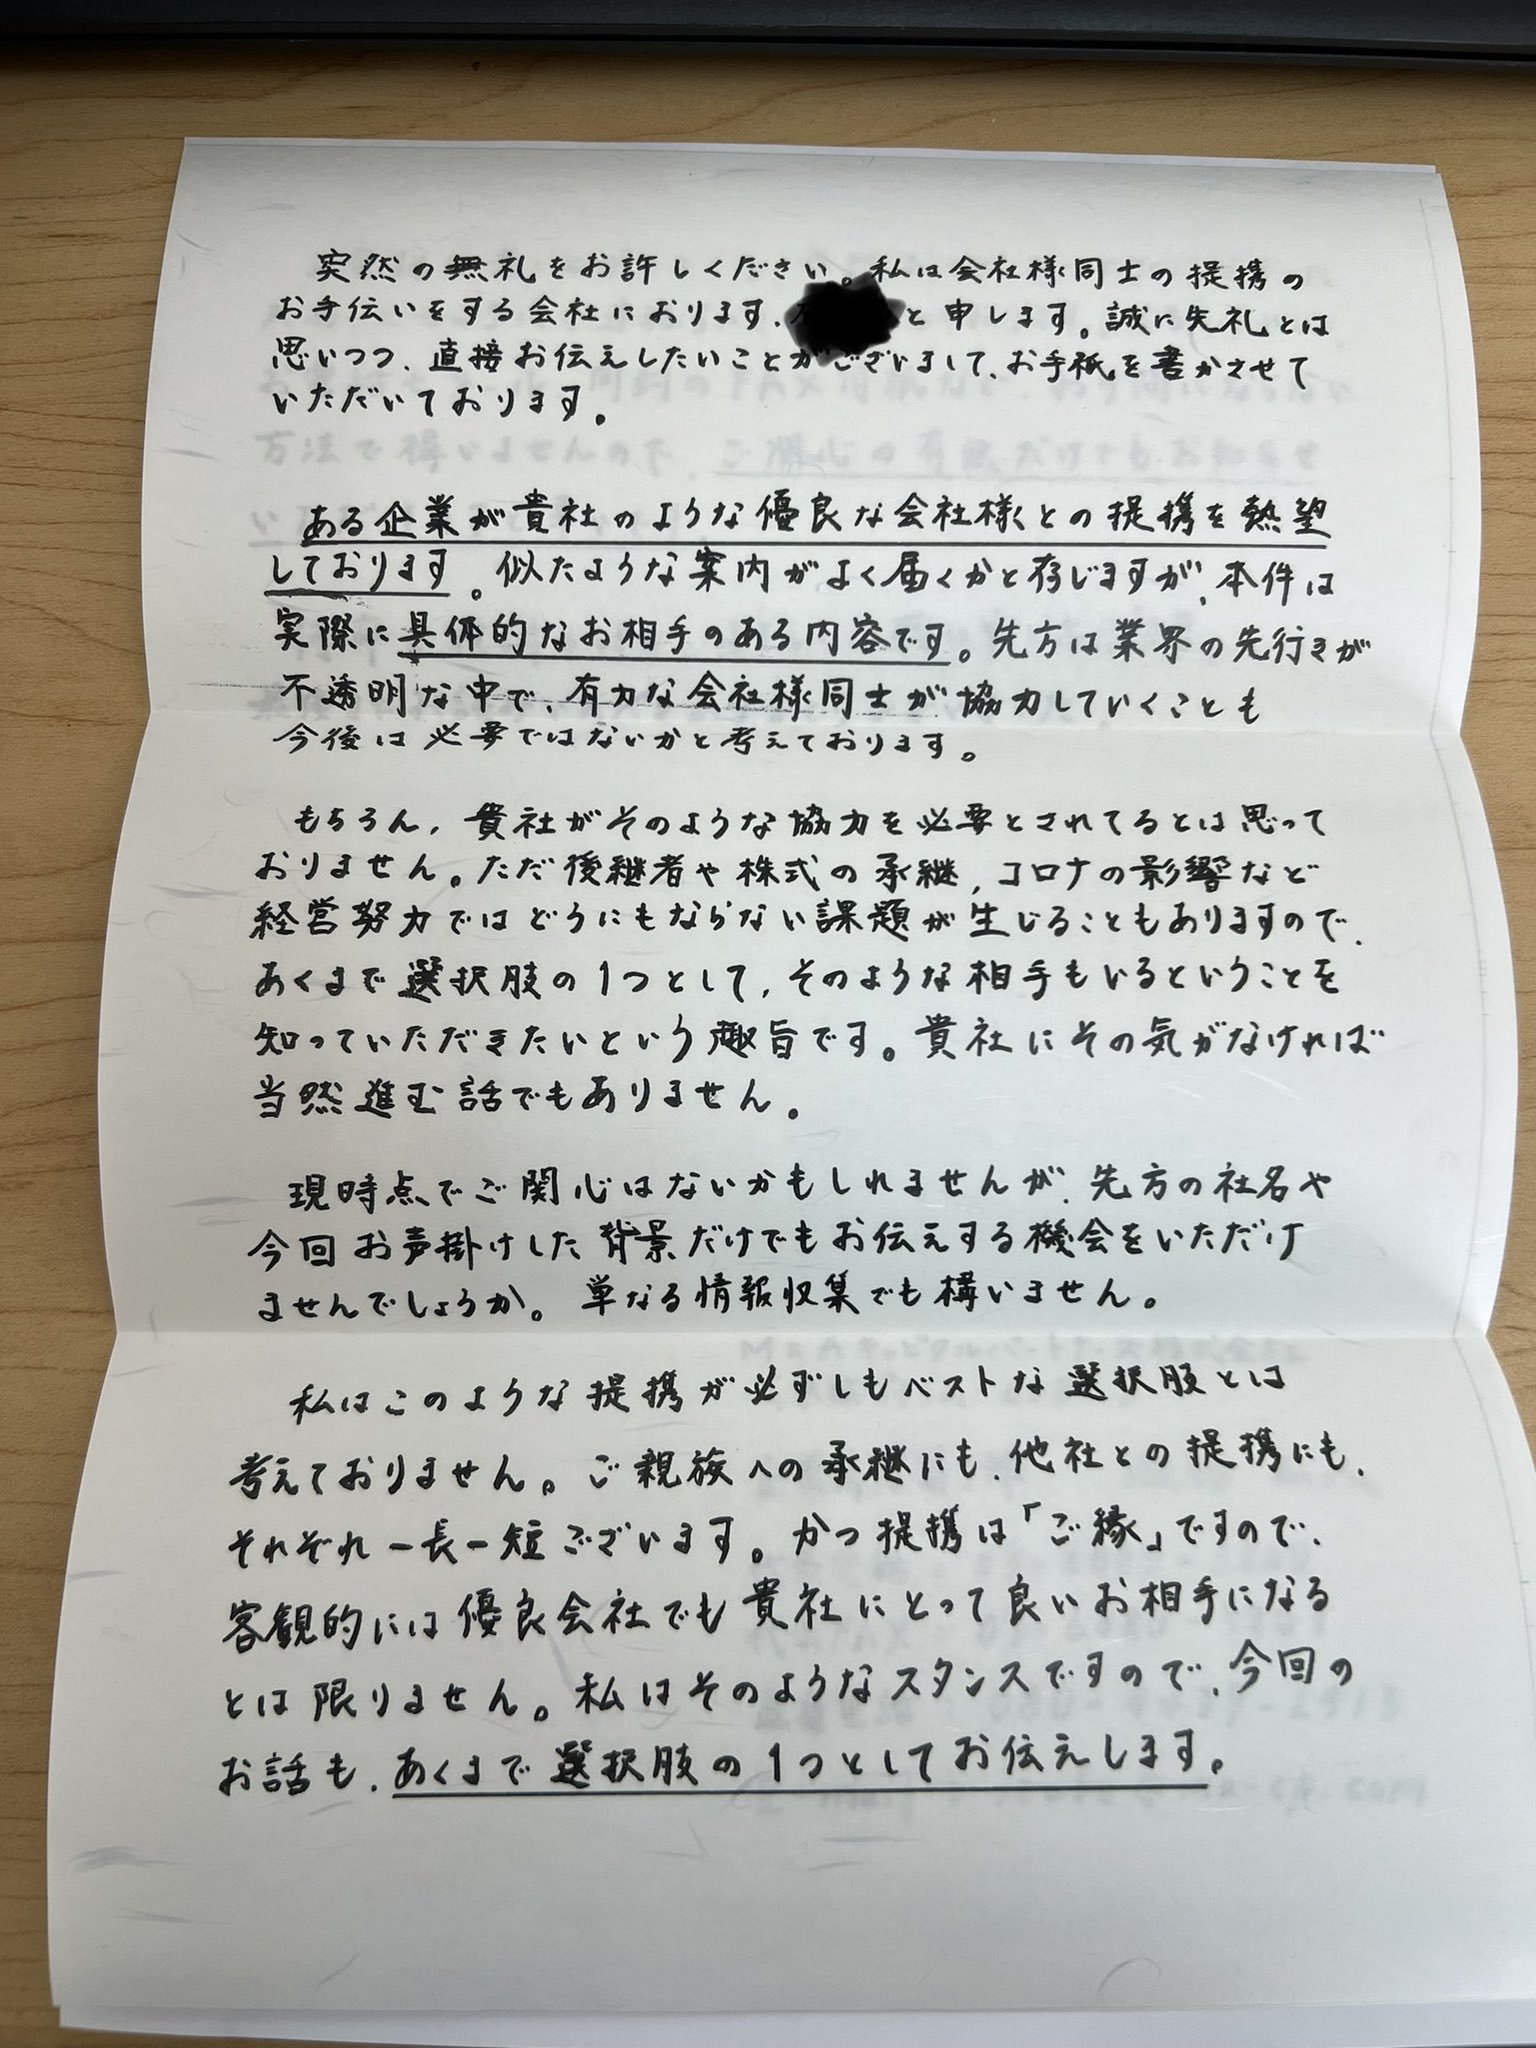 突然の無礼をお許しください。私は会社様同士の提携の
お手伝いをする会社におります、と申します。誠に失礼とは
思いつつ、直接お伝えしたいことがございまして、お手紙を書かさせて
いただいております。
ある企業が貴社のような優良な会社様との提携を熱望
しております。似たような案内がよく届くかと存じますが、本件は
実際に具体的なお相手のある内容です。先方は業界の先行きが
不透明な中で、有力な会社様同士が協力していくことも
今後は必要ではないかと考えております。
もちろん、貴社がそのような協力を必要とされてるとは思って
おりません。ただ後継者や株式の承継、コロナの影響など
経営努力ではどうにもならない課題が生じることもありますので、
あくまで選択肢の1つとして、そのような相手もいるということを
知っていただきたいという趣旨です。貴社にその気がなければ
当然進む話でもありません。
現時点でご関心はないかもしれませんが、先方の社名や
今回お声掛けした背景だけでもお伝えする機会をいただけ
ませんでしょうか。単なる情報収集でも構いません。
私はこのような提携が必ずしもベストな選択肢とは
考えておりません。ご親族への承継にも、他社との提携にも、
それぞれ一長一短ございます。かつ提携は「ご縁」ですので、
客観的には優良会社でも貴社にとって良いお相手になる
とは限りません。私はそのようなスタンスですので、今回の
お話も、あくまで選択肢の1つとしてお伝えします。